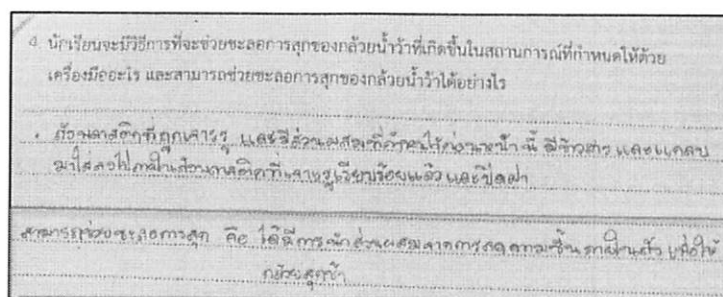 4. นักเรียนจะมีวิธีการที่จะช่วยชะลอการสุกของกล้วยน้ำว้าที่เกิดขึ้นในสถานการณ์ที่กำหนดให้ด้วย
เครื่องมืออะไร และสามารถช่วยชะลอการสุกของกล้วยน้ำว้าได้อย่างไร
ถ้วยพลาสติกที่ถูกเจาะรู และมีส่วนผสมที่ ไว้ก่อนหน้านี้ มีข้าวสาร และแกลบ
มาใส่ลงไปภายในถ้วยพลาสติกที่เจาะรูเรียบร้อยแล้ว และปิดฝา
สามารถช่วยชะลอการสุก คือ ได้มีการนำส่วนผสมจากการลดความชื้นภายในแล้ว เพื่อให้
กล้วยสุกช้า